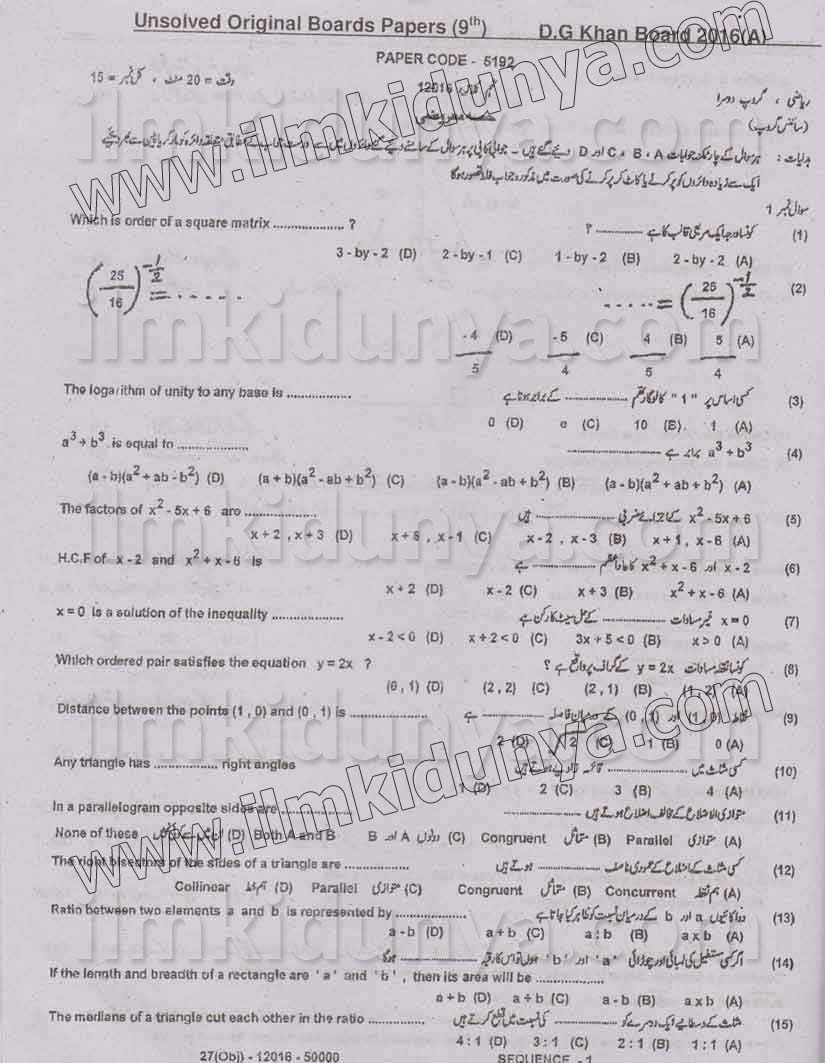 Unsolved Original Boards Papers (9th) D.G Khan Board 2016(A)
PAPER CODE - 5192
وقت = 20 منٹ ، کل نمبر = 15
12016
ریاضی ، گروپ دوسرا
(سائنس گروپ)
سوال نمبر 1
Which is order of a square matrix .................. ? کونسا درجہ ایک مربعی قالب کا ہے ............ ؟ (1)
3 - by - 2 (D) 2 - by - 1 (C) 1 - by - 2 (B) 2 - by - 2 (A)
(25/16)^-1/2 = ...... ..... = (25/16)^-1/2 (2)
-4/5 (D) -5/4 (C) 4/5 (B) 5/4 (A)
The logarithm of unity to any base is ................ کسی اساس پر "1" کا لوگارتھم ............ کے برابر ہوتا ہے (3)
0 (D) e (C) 10 (B) 1 (A)
a³ + b³ is equal to .................. a³ + b³ برابر ہے .................. (4)
(a - b)(a² + ab - b²) (D) (a + b)(a² - ab + b²) (C) (a - b)(a² - ab + b²) (B) (a - b)(a² + ab + b²) (A)
The factors of x² - 5x + 6 are .................. x² - 5x + 6 کے اجزائے ضربی .................. ہیں (5)
x + 2 , x + 3 (D) x + 6 , x - 1 (C) x - 2 , x - 3 (B) x + 1 , x - 6 (A)
H.C.F of x - 2 and x² + x - 6 is x - 2 اور x² + x - 6 کا عاد اعظم .................. ہے (6)
x + 2 (D) x - 2 (C) x + 3 (B) x² + x - 6 (A)
x = 0 is a solution of the inequality .................. x = 0 غیر مساوات .................. کے حل سیٹ کا رکن ہے (7)
x - 2 < 0 (D) x + 2 < 0 (C) 3x + 5 < 0 (B) x > 0 (A)
Which ordered pair satisfies the equation y = 2x ? کونسا نقطہ مساوات y = 2x کے گراف پر واقع ہے ؟ (8)
(6 , 1) (D) (2 , 2) (C) (2 , 1) (B) (1 , 2) (A)
Distance between the points (1 , 0) and (0 , 1) is .................. نقاط (1 , 0) اور (0 , 1) کے درمیان فاصلہ .................. ہے (9)
2 (D) √2 (C) 1 (B) 0 (A)
Any triangle has .................. right angles کسی مثلث میں .................. قائمہ زاویے ہوتے ہیں (10)
1 (D) 2 (C) 3 (B) 4 (A)
In a parallelogram opposite sides are .................. متوازی الاضلاع کے مخالف اضلاع ہوتے ہیں .................. (11)
None of these ان میں سے کوئی نہیں (D) Both A and B B اور A دونوں (C) Congruent متماثل (B) Parallel متوازی (A)
The right bisectors of the sides of a triangle are .................. کسی مثلث کے اضلاع کے عمودی ناصف .................. ہوتے ہیں (12)
Collinear ہم خط (D) Parallel متوازی (C) Congruent متماثل (B) Concurrent ہم نقطہ (A)
Ratio between two elements a and b is represented by .................. دو اکائیوں a اور b کے درمیان نسبت کو ظاہر کیا جاتا ہے (13)
a - b (D) a + b (C) a : b (B) a x b (A)
اگر کسی مستطیل کی لمبائی اور چوڑائی 'a' اور 'b' ہوں تو اس کا رقبہ .................. ہوگا (14)
If the length and breadth of a rectangle are 'a' and 'b' , then its area will be ..................
a ÷ b (D) a + b (C) a - b (B) a x b (A)
The medians of a triangle cut each other in the ratio .............. مثلث کے وسطانیے ایک دوسرے کو .............. کی نسبت میں قطع کرتے ہیں (15)
4 : 1 (D) 3 : 1 (C) 2 : 1 (B) 1 : 1 (A)
27(Obj) - 12016 - 50000 SEQUENCE - 1
www.ilmkidunya.com
www.ilmkidunya.com
ilmkidunya.com
ilmkidunya.com
ilmkidunya.com
ilmkidunya.com
ilmkidunya.com